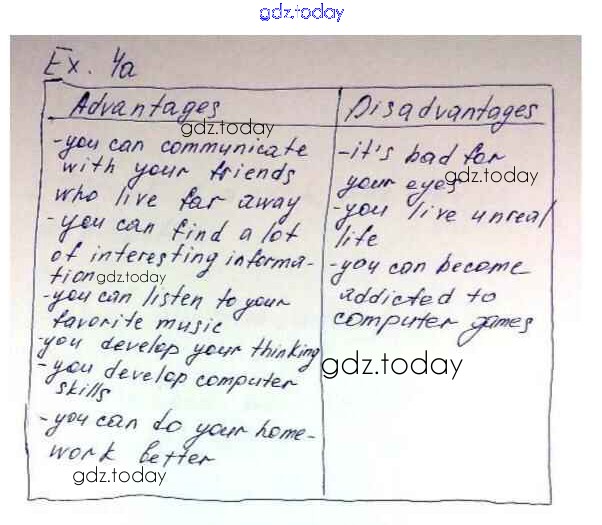 gdz.today
Ex. 4a
Advantages
gdz.today
-you can communicate
with your friends
who live far away
-you can find a lot
of interesting informa-
tion gdz.today
-you can listen to your
favorite music
-you develop your thinking
-you develop computer
skills
-you can do your home-
work better
gdz.today
Disadvantages
-it's bad for
your eyes gdz.today
-you live unreal
life
-you can become
addicted to
computer games
gdz.today